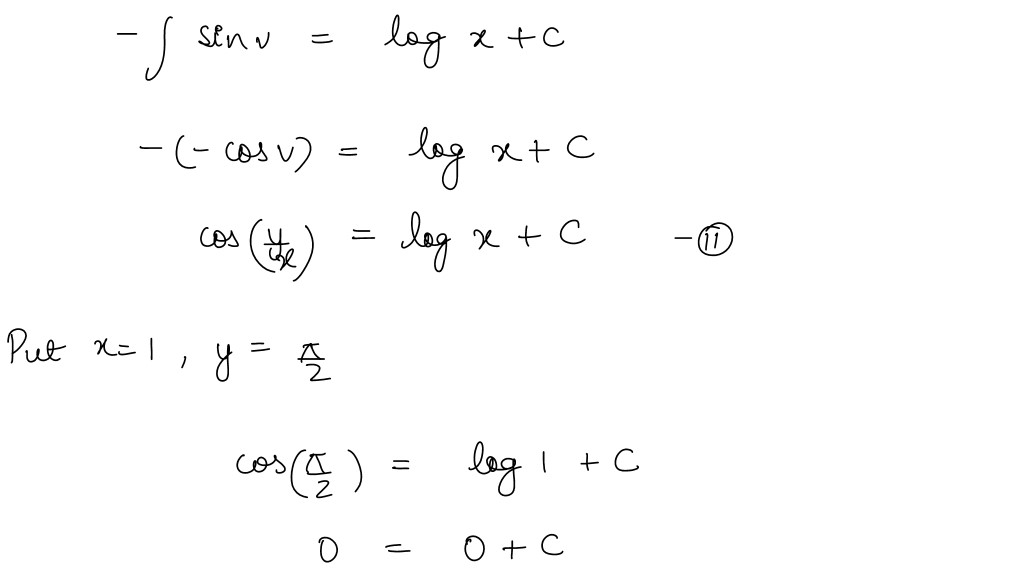 - ∫ sin v = log x + C
- (- cos v) = log x + C
cos(y/x) = log x + C - (II)
Put x=1, y = π/2
cos(π/2) = log 1 + C
0 = 0 + C